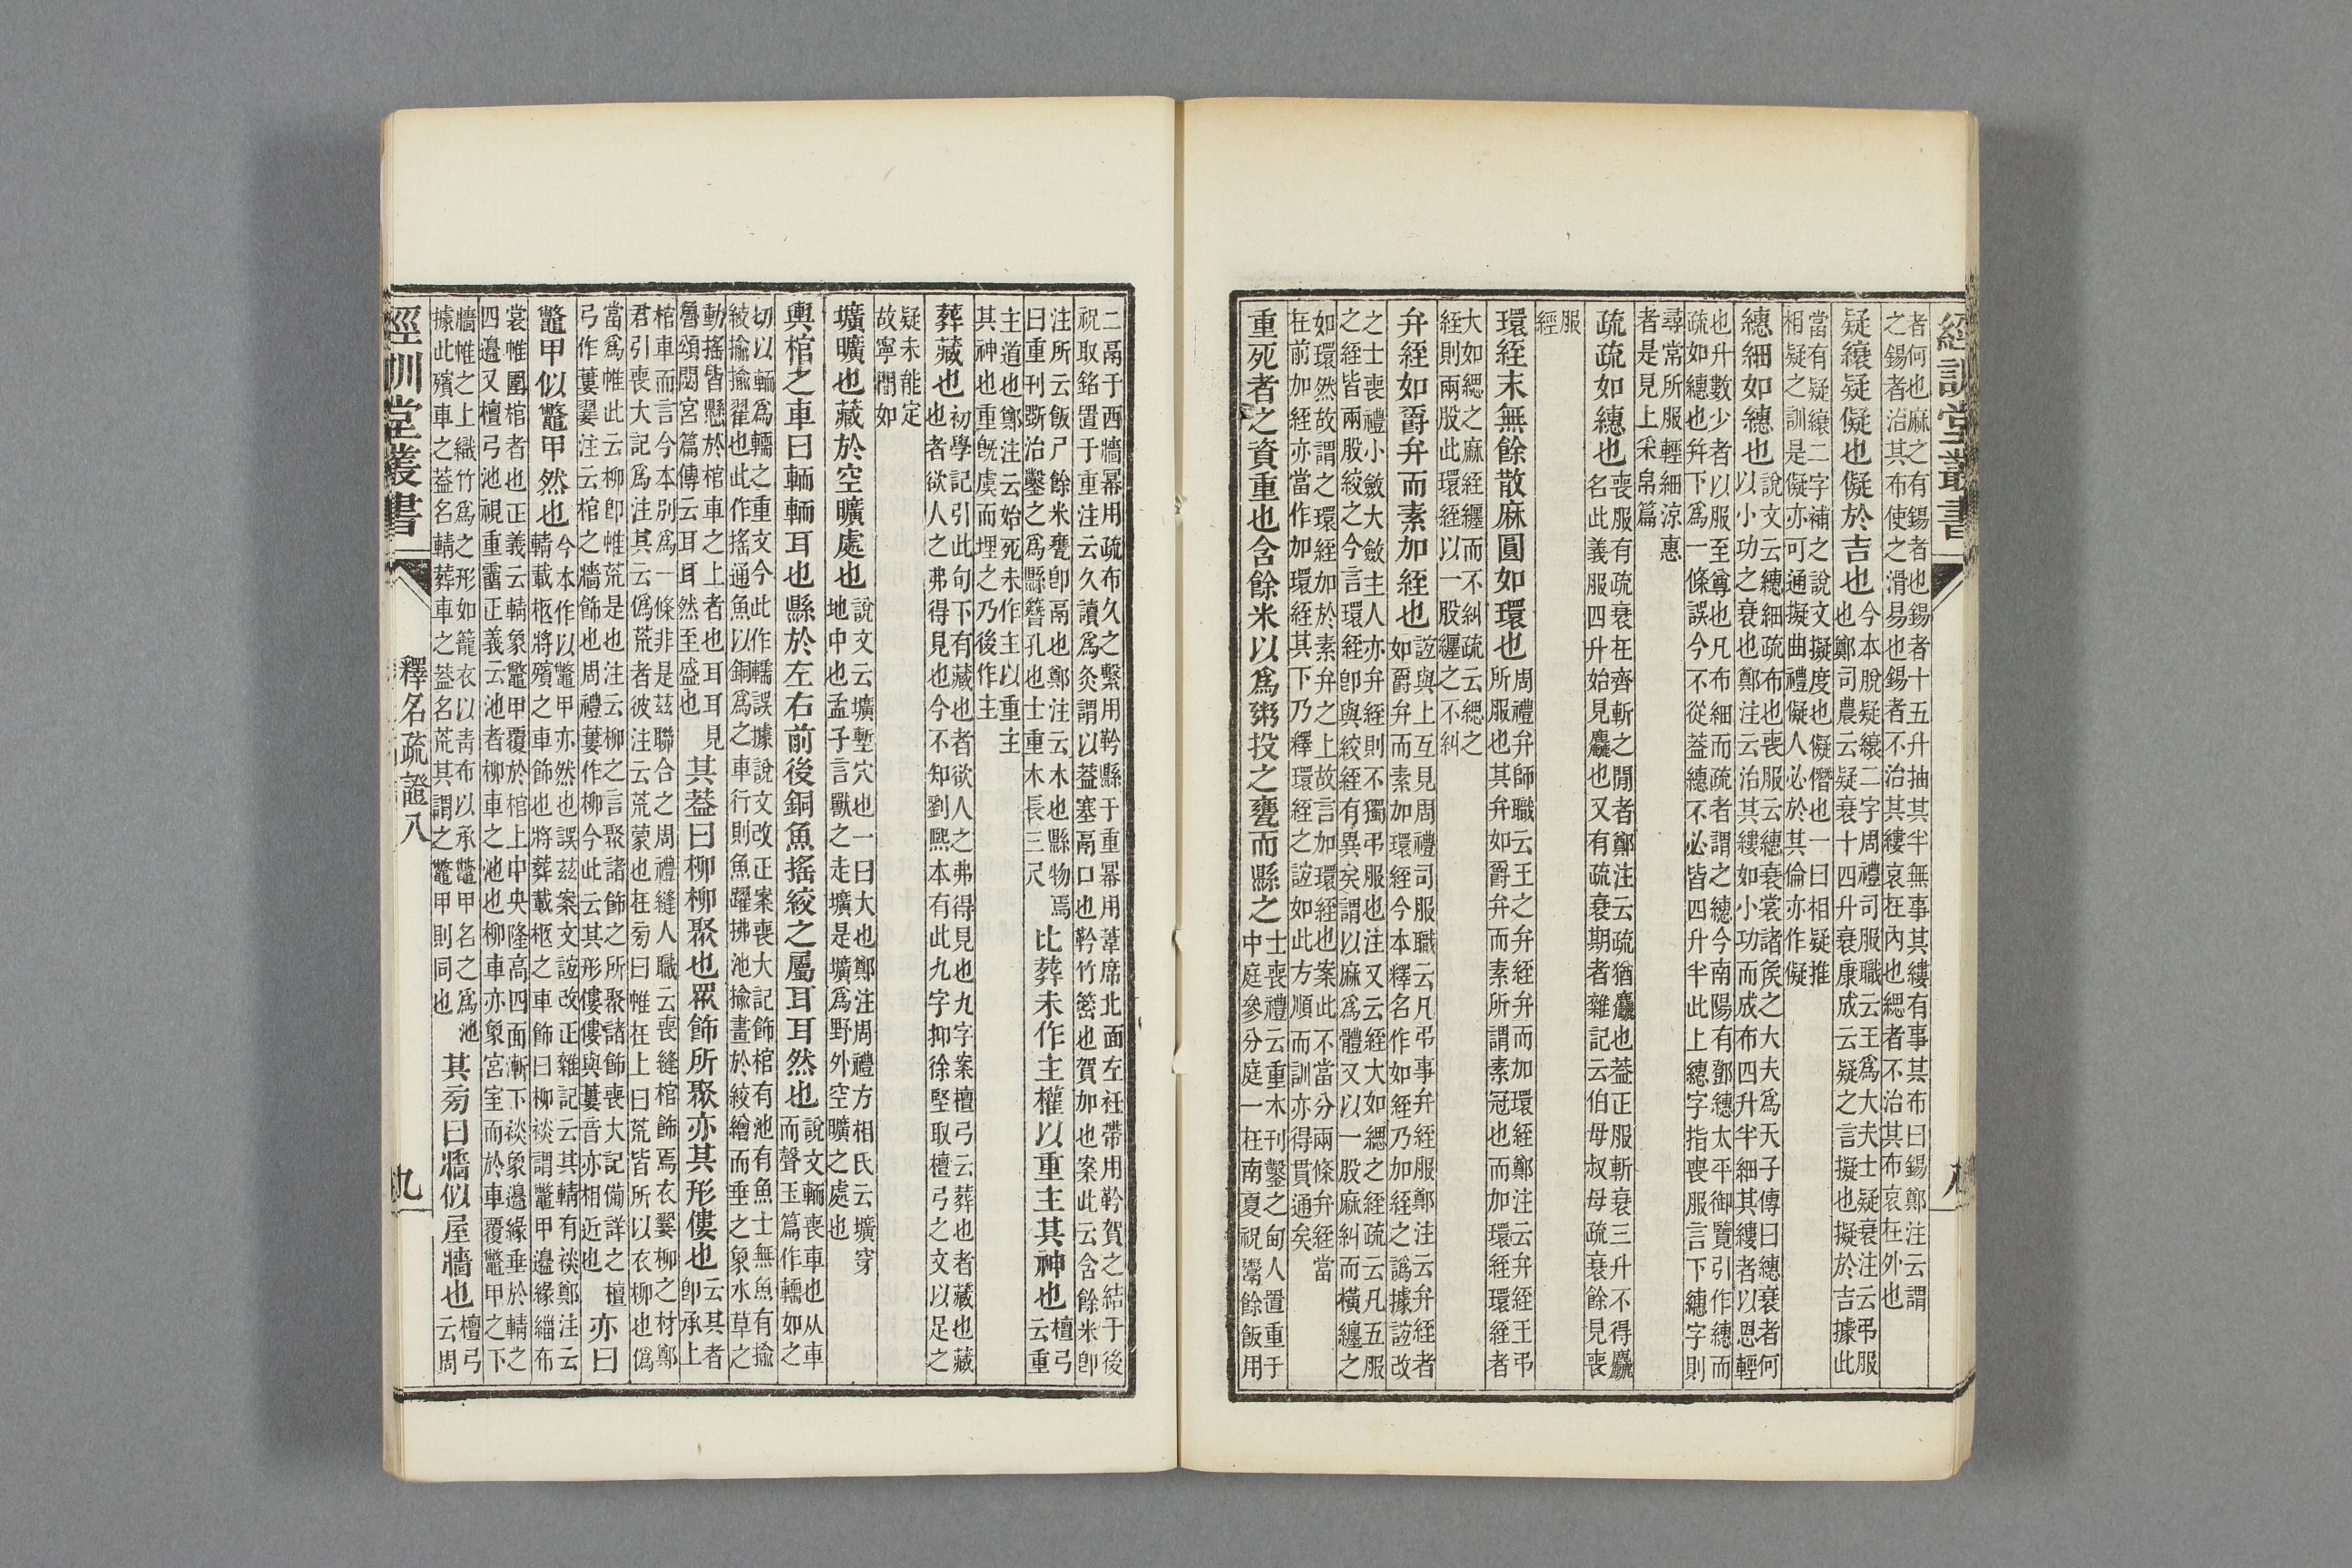 經訓堂叢書
者何也麻之有錫者也錫者十五升抽其半無事其縷有事其布曰錫鄭注云謂
之錫者治其布使之滑易也錫者不治其縷哀在內也緦者不治其布哀在外也
疑縗疑儗也儗於吉也今本脫疑縗二字周禮司服職云王爲大夫士疑衰注云弔服
也鄭司農云疑衰十四升衰康成云疑之言擬也擬於吉據此
當有疑縗二字補之說文擬度也儗僭也一曰相疑推
相疑之訓是儗亦可通擬曲禮儗人必於其倫亦作儗
繐細如繐也說文云繐細疏布也喪服云繐衰裳諸矦之大夫爲天子傳曰繐衰者何
以小功之衰也鄭注云治其縷如小功而成布四升半細其縷者以恩輕
也升數少者以服至尊也凡布細而疏者謂之繐今南陽有鄧繐太平御覽引作繐而
疏如繐也幷下爲一條誤今不從葢繐不必皆四升半此上繐字指喪服言下繐字則
尋常所服輕細涼惠
者是見上采帛篇
疏疏如繐也喪服有疏衰在齊斬之閒者鄭注云疏猶麤也葢正服斬衰三升不得麤
名此義服四升始見麤也又有疏衰期者雜記云伯母叔母疏衰餘見喪
服
經
環絰末無餘散麻圓如環也周禮弁師職云王之弁絰弁而加環絰鄭注云弁絰王弔
所服也其弁如爵弁而素所謂素冠也而加環絰環絰者
大如緦之麻絰纏而不糾疏云緦之
絰則兩股此環絰以一股纏之不糾
弁絰如爵弁而素加絰也誼與上互見周禮司服職云凡弔事弁絰服鄭注云弁絰者
如爵弁而素加環絰今本釋名作如絰乃加絰之譌據誼改
之士喪禮小斂大斂主人亦弁絰則不獨弔服也注又云絰大如緦之絰疏云凡五服
之絰皆兩股絞之今言環絰卽與絞絰有異矣謂以麻爲體又以一股麻糾而橫纏之
如環然故謂之環絰加於素弁之上故言加環絰也案此不當分兩條弁絰當
在前加絰亦當作加環絰其下乃釋環絰之誼如此方順而訓亦得貫通矣
重死者之資重也含餘米以爲粥投之甕而縣之士喪禮云重木刊鑿之甸人置重于
中庭參分庭一在南夏祝鬻餘飯用
二鬲于西牆冪用疏布久之繫用靲縣于重冪用葦席北面左衽帶用靲賀之結于後
祝取銘置于重注云久讀爲灸謂以葢塞鬲口也靲竹䈼也賀加也案此云含餘米卽
注所云飯尸餘米甕卽鬲也鄭注云木也縣物焉
曰重刊斲治鑿之爲縣簪孔也士重木長三尺比葬未作主權以重主其神也檀弓
云重
主道也鄭注云始死未作主以重主
其神也重旣虞而埋之乃後作主
葬藏也初學記引此句下有藏也者欲人之弗得見也九字案檀弓云葬也者藏也藏
也者欲人之弗得見也今不知劉熙本有此九字抑徐堅取檀弓之文以足之
疑未能定
故寧闕如
壙曠也藏於空曠處也說文云壙塹穴也一曰大也鄭注周禮方相氏云壙穿
地中也孟子言獸之走壙是壙爲野外空曠之處也
輿棺之車曰輀輀耳也縣於左右前後銅魚搖絞之屬耳耳然也說文輀喪車也从車
而聲玉篇作轜如之
切以輀爲轜之重文今此作轜誤據說文改正案喪大記飾棺有池有魚士無魚有揄
絞揄揄翟也此作搖通魚以銅爲之車行則魚躍拂池揄畫於絞繒而垂之象水草之
動搖皆懸於棺車之上者也耳耳見
魯頌閟宮篇傳云耳耳然至盛也其葢曰柳柳聚也眾飾所聚亦其形僂也云其者
卽承上
棺車而言今本別爲一條非是茲聯合之周禮縫人職云喪縫棺飾焉衣翣柳之材鄭
君引喪大記爲注其云僞荒者彼注云荒蒙也在旁曰帷在上曰荒皆所以衣柳也僞
當爲帷此云柳卽帷荒是也注云柳之言聚諸飾之所聚諸飾喪大記備詳之檀
弓作蔞翣注云棺之牆飾也周禮蔞作柳今此云其形僂僂與蔞音亦相近也亦曰
鼈甲似鼈甲然也今本作以鼈甲亦然也誤茲案文誼改正雜記云其輤有裧鄭注云
輤載柩將殯之車飾也將葬載柩之車飾曰柳裧謂鼈甲邉緣緇布
裳帷圍棺者也正義云輤象鼈甲覆於棺上中央隆高四面漸下裧象邉緣垂於輤之
四邉又檀弓池視重霤正義云池者柳車之池也柳車亦象宮室而於車覆鼈甲之下
牆帷之上織竹爲之形如籠衣以靑布以承鼈甲名之爲池
據此殯車之葢名輤葬車之葢名荒其謂之鼈甲則同也其旁曰牆似屋牆也檀弓
云周
經訓堂叢書
釋名疏證八
九